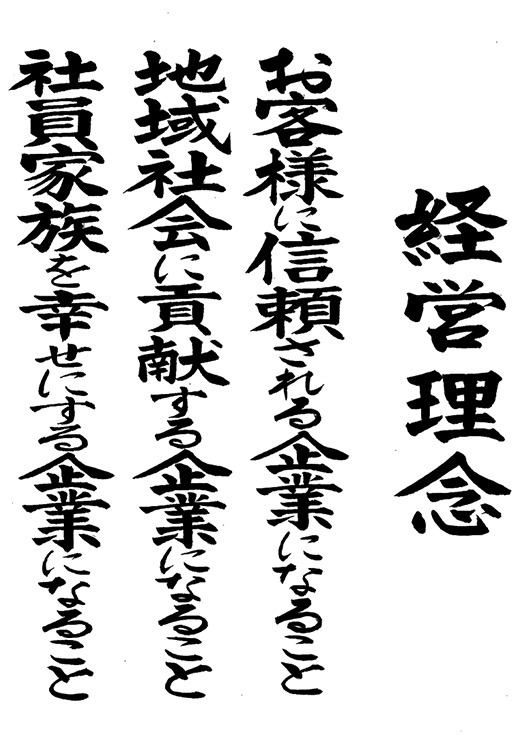 経営理念
お客様に信頼される企業になること
地域社会に貢献する企業になること
社員家族を幸せにする企業になること